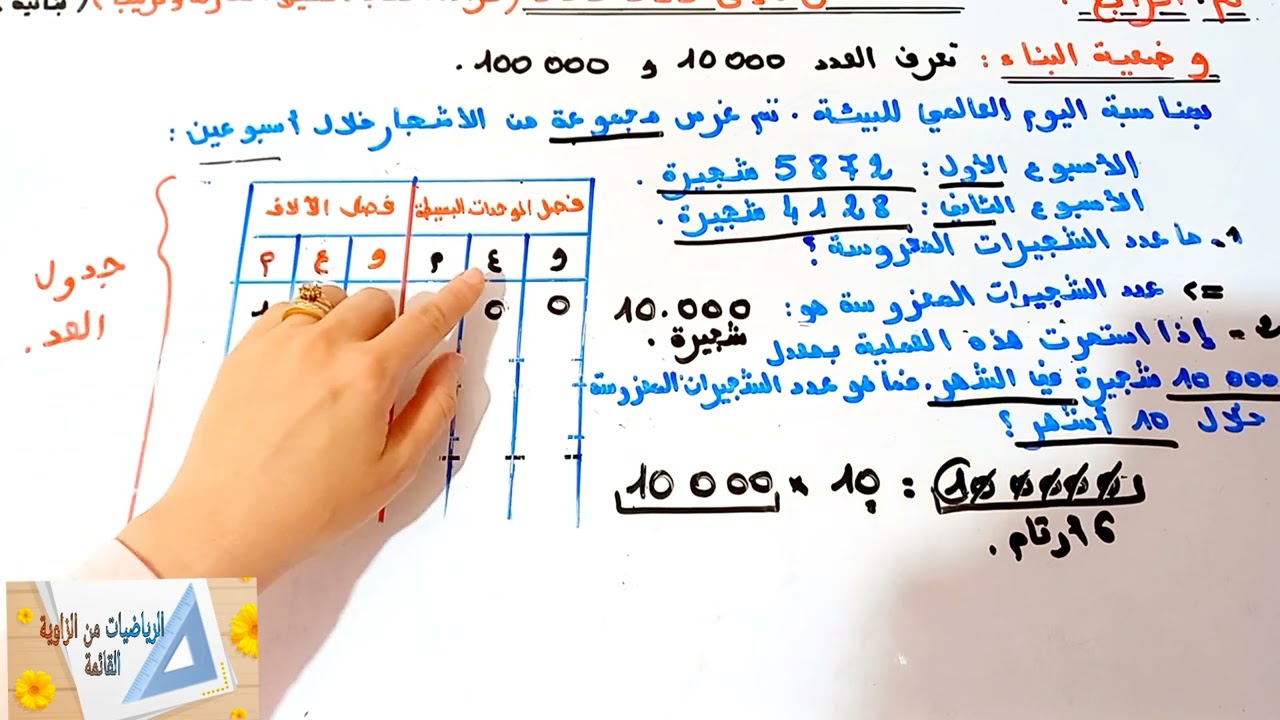 وضعية البناء : تعرف العدد 10 000 و 100 000 .
بمناسبة اليوم العالمي للبيئة . تم غرس مجموعة من الأشجار خلال أسبوعين :
الأسبوع الأول : 5872 شجيرة .
الأسبوع الثاني : 4128 شجيرة .
1. ما عدد الشجيرات المغروسة ؟
=> عدد الشجيرات المغروسة هو : 10.000 شجيرة .
2 - إذا استمرت هذه العملية بمعدل
10 000 شجيرة في الشهر . فما هو عدد الشجيرات المغروسة
خلال 10 أشهر ؟
10 000 × 10 = 100000
6 أرقام .
جدول
العد .
فصل الوحدات البسيطة فصل الآلاف
و ع م و ع م
0 0 1
الرياضيات من الزاوية
القائمة